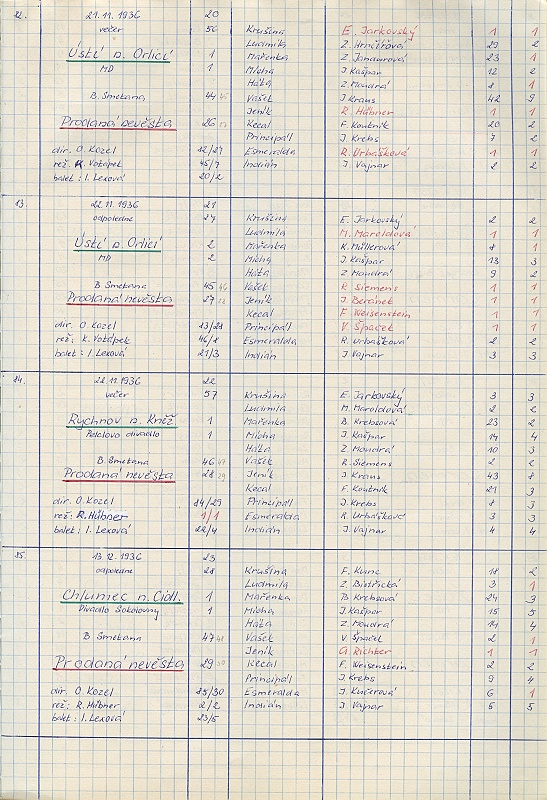 22. 21.11.1936 20
večer 56 Krušina E. Jarkovský 1 1
Ludmila Z. Hrnčířová 29 2
Ústí n. Orlicí 1 Mařenka Z. Jandurová 23 1
MD 1 Mícha J. Kašpar 12 2
Háta Z. Moudrá 8 1
B. Smetana 44 Vašek J Kraus 42 9
Jeník R. Hübner 1 1
Prodaná nevěsta 26 Kecal F. Koutník 20 2
Principál J. Krebs 7 2
dir. O. Kozel 12/27 Esmeralda R. Urbášková 1 1
rež. K. Votápek 45/7 Indián J. Vajnar 2 2
balet: I. Lexová 20/2
13 22.11.1936 21
odpoledne 27 Krušina E. Jarkovský 2 2
Ludmila M. Maroldová 1 1
Ústí n. Orlicí 2 Mařenka K. Müllerová 8 1
MD 2 Mícha J. Kašpar 13 3
Háta Z Moudrá 9 2
B Smetana 45 46 Vašek R Siemens 1 1
Prodaná nevěsta 27 Jeník J. Beránek 1 1
Kecal F. Weisenstein 1 1
dir. O. Kozel 13/28 Principál V. Špaček 1 1
rež: K. Votápek 46/8 Esmeralda R. Urbášková 2 2
balet: I. Lexová 21/3 Indián J. Vajnar 3 3
24. 22.11.1936 22
večer 57 Krušina E. Jarkovský 3 3
Ludmila M. Maroldová 2 2
Rychnov n. Kněž 1 Mařenka B. Krebsová 23 2
Pelclovo divadlo 1 Mícha J. Kašpar 14 4
Háta Z. Moudrá 10 3
B. Smetana 46 47 Vašek R. Siemens 2 2
Prodaná nevěsta 28 29 Jeník J Kraus 43 8
Kecal F. Koutník 21 3
dir. O. Kozel 14/29 Principál J. Krebs 8 3
rež: R. Hübner 1/1 Esmeralda R. Urbášková 3 3
balet: I. Lexová 22/4 Indián J. Vajnar 4 4
25. 13.12.1936 23
odpoledne 28 Krušina F. Kunc 18 2
Ludmila Z. Bistřická 3 1
Chlumec n. Cidl. 1 Mařenka B. Krebsová 24 3
Divadlo Sokolovny 1 Mícha J. Kašpar 15 5
Háta Z. Moudrá 14 4
B Smetana 47 48 Vašek V Špaček 2 1
Jeník A Richter 1 1
Prodaná nevěsta 29 30 Kecal F. Weisenstein 2 2
Principál J. Krebs 9 4
dir. O. Kozel 15/30 Esmeralda J. Kučerová 6 1
rež: R. Hübner 2/2 Indián J. Vajnar 5 5
balet: I. Lexová 23/5